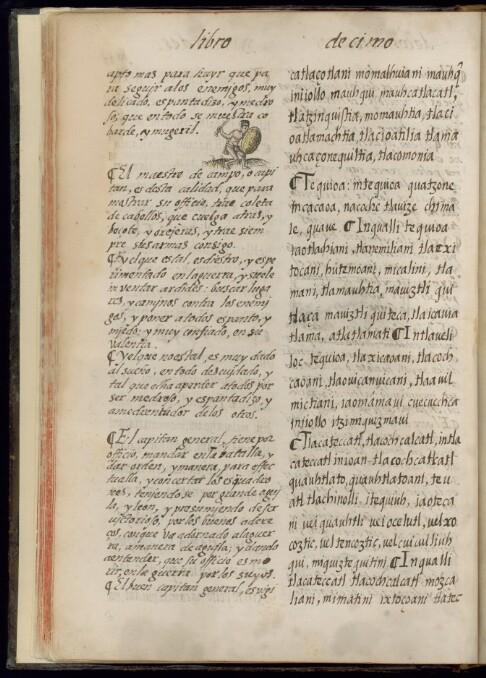 libro
decimo
apto mas para huyr que pa
ra seguir a los enemigos, muy
delicado, espantadizo, y medro
so, que en todo se muestra co
barde, y mugeril.
¶ El maestro de campo, o capi
tan, es desta calidad, que para
mostrar su officio, trae coleta
de cabellos, que cuelga atras, y
beçote, y orejeras, y trae siem
pre sus armas consigo.
¶ y el que es tal, es diestro, y espe
rimentado en la guerra, y suele
inventar ardides: buscar luga
res, y caminos contra los enemi
gos, y poner a todos espanto, y
miedo: y muy confiado, en su
valentia.
¶ y el que no es tal, es muy dado
al sueño, en todo descuidado, y
tal que echa a perder a todos por
ser medroso, y espantadizo, y
amedrentador de los otros.
¶ El capitan general, tiene por
officio, mandar en la batalla, y
dar orden, y manera, para effec
tualla, y concertar los esquadro
nes, teniendose por grande agui
la, y leon, y presumiendo de ser
victorioso, por los buenos adere
ços, con que va adornado a la gue
rra, a manera de aguila; y dando
a entender, que su officio es mo
rir, en la guerra por los suyos.
¶ El buen capitan general, es vigi
catlaçotlani momalhuiani mauhq
iniiollo mauhqui, mauhcatlacatl,
tlatzinquistia, momauhtia, tlaci
oatlamachtia, tlacioatilia, tlama
uhcaçonequiltia, tlacomonia
¶ Tequioa: in tequioa quatzone
in cacaoa, nacoche tlauize chima
le, quaue ¶ In qualli tequioa
iaotlachiani, tlanemiliani, tlaixi
tocani, hutemoani, micalini, tla
mani, tlamauhtia, mauiztli qui
tlaça mauiztli quiteca, tlaicauia
tlama, atlatlamati ¶ In tlaueli
loc tequioa, tlaxicaoani, tlacoch
caoani, tlaouicanuicani, tlaauil
mictiani, iaomamaui cuecuechca
iniiollo itzimiquizmaui
¶ Tlacateccatl, tlacochcalcatl, in tla
cateccatl inioan tlacochcalcatl
quauhtlato, quauhtlatoani, teu
atl tlachinolli itequiuh, iaoteca
ni vei quauhtli vei ocelutl, vel xo
coztic, vel tencoztic, vel cuicuiliuh
qui, miquizte quitini ¶ In qualli
tlacateccatl tlacochcalcatl mozca
liani, mimatini ixtoçoani tlatec